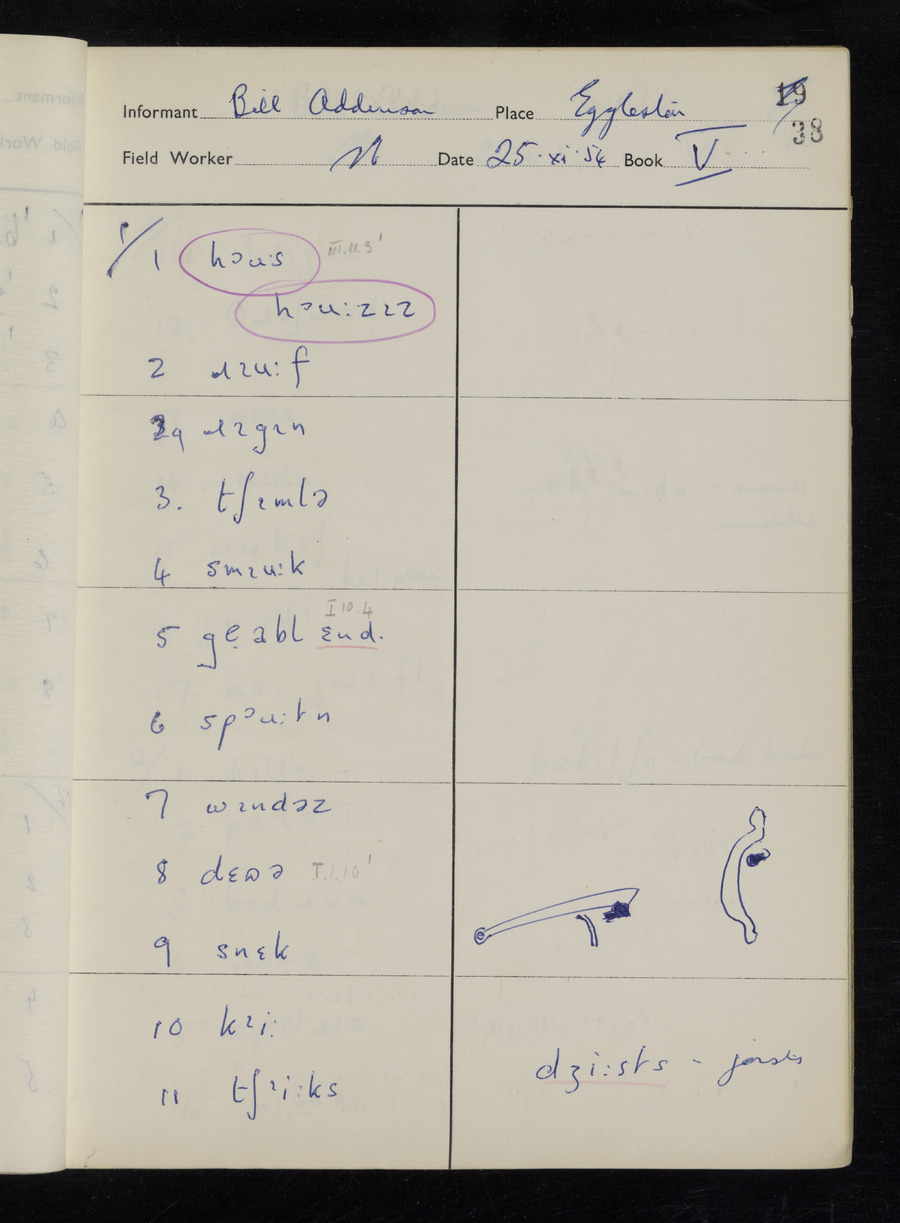 Informant Bill Addinson Place Eggleston 19
38
Field Worker Date 25·xi·54 Book V
1/ 1 həu:s III.11.3'
həu:zɪz
2 ɹɪu:f
2a ɹɪgɪn
3. tʃɪmlə
4 smɪu:k
5 geabl ɛnd. I 10.4
6 spəu:tn
7 wɪndəz
8 dɛωə I.1.10'
9 snɛk
10 kɪi:
dʒi:sts - joists
11 tʃɪi:ks